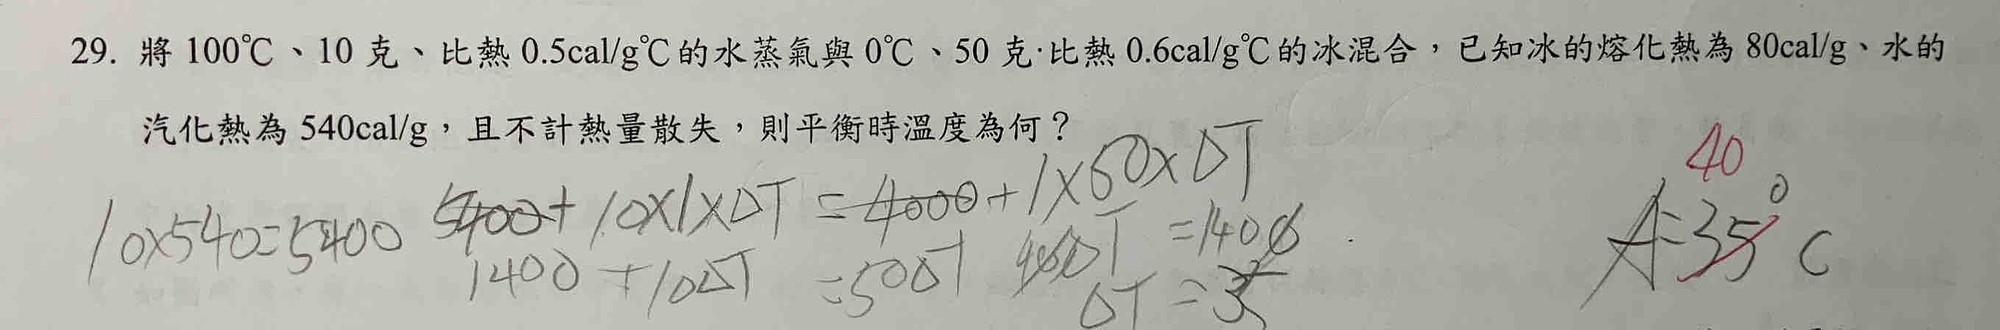 29. 將 100℃、10 克、比熱 0.5cal/g℃的水蒸氣與 0℃、50 克·比熱 0.6cal/g℃的冰混合，已知冰的熔化熱為 80cal/g、水的
汽化熱為 540cal/g，且不計熱量散失，則平衡時溫度為何？
10×540=5400 5400+10×1×ΔT=4000+1×50×ΔT
1400+10ΔT=50ΔT
40ΔT=1400
ΔT=35
40
A=35°C